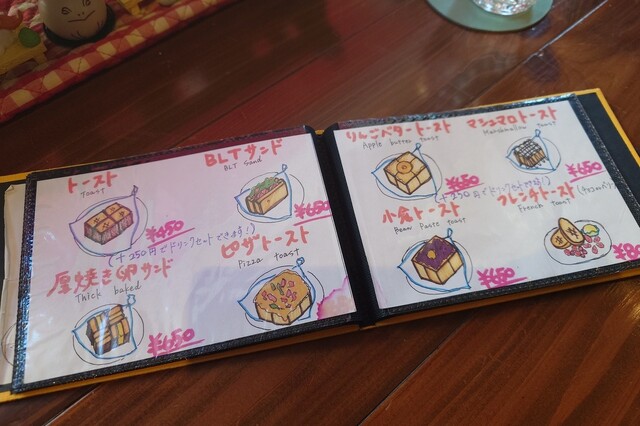 トースト
Toast
¥450
BLTサンド
BLT Sand
¥650
(+250円でドリンクセットできます!)
厚焼き卵サンド
Thick baked
¥650
ピザトースト
Pizza toast
りんごバタートースト
Apple butter toast
¥650
マシュマロトースト
Marshmallow toast
¥650
(+250円でドリンクセットできます!)
小倉トースト
Bean Paste toast
¥650
フレンチトースト
French toast